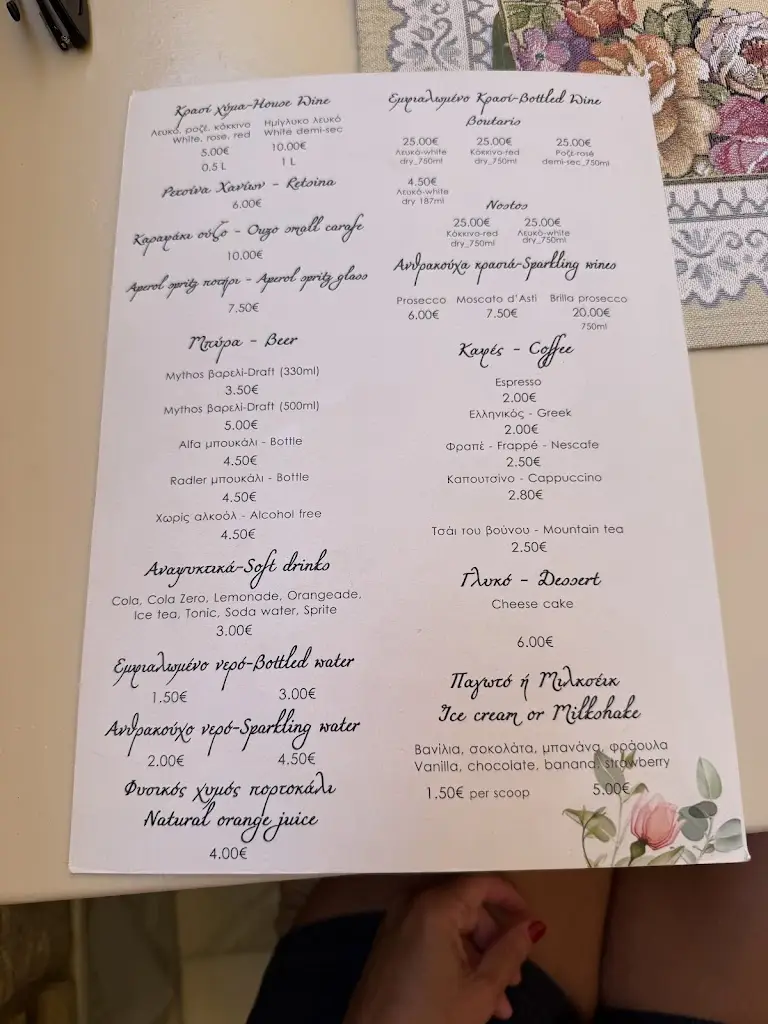 Κρασί χύμα-House Wine
Λευκό, ροζέ, κόκκινο
White, rose, red
5.00€
0.5 L
Ημίγλυκο λευκό
White demi-sec
10.00€
1 L
Ρετσίνα Χανίων - Retsina
6.00€
Καραφάκι ούζο - Ouzo small carafe
10.00€
Aperol spritz ποτήρι - Aperol spritz glass
7.50€
Μπύρα - Beer
Mythos βαρελί-Draft (330ml)
3.50€
Mythos βαρελί-Draft (500ml)
5.00€
Alfa μπουκάλι - Bottle
4.50€
Radler μπουκάλι - Bottle
4.50€
Χωρίς αλκοόλ - Alcohol free
4.50€
Αναψυκτικά-Soft drinks
Cola, Cola Zero, Lemonade, Orangeade,
Ice tea, Tonic, Soda water, Sprite
3.00€
Εμφιαλωμένο νερό-Bottled water
1.50€ 3.00€
Ανθρακούχο νερό-Sparkling water
2.00€ 4.50€
Φυσικός χυμός πορτοκάλι
Natural orange juice
4.00€
Εμφιαλωμένο Κρασί-Bottled Wine
Boutaris
25.00€ 25.00€ 25.00€
Λευκό-white Κόκκινο-red Ροζέ-rosé
dry_750ml dry_750ml demi-sec_750ml
4.50€
Λευκό-white
dry 187ml
Nostos
25.00€ 25.00€
Κόκκινο-red Λευκό-white
dry_750ml dry_750ml
Ανθρακούχα κρασιά-Sparkling wines
Prosecco Moscato d'Asti Brilla prosecco
6.00€ 7.50€ 20.00€
750ml
Καφές - Coffee
Espresso
2.00€
Ελληνικός - Greek
2.00€
Φραπέ - Frappé - Nescafe
2.50€
Καπουτσίνο - Cappuccino
2.80€
Τσάι του βούνου - Mountain tea
2.50€
Γλυκό - Dessert
Cheese cake
6.00€
Παγωτό ή Μιλκσέικ
Ice cream or Milkshake
Βανίλια, σοκολάτα, μπανάνα, φράουλα
Vanilla, chocolate, banana, strawberry
1.50€ per scoop 5.00€